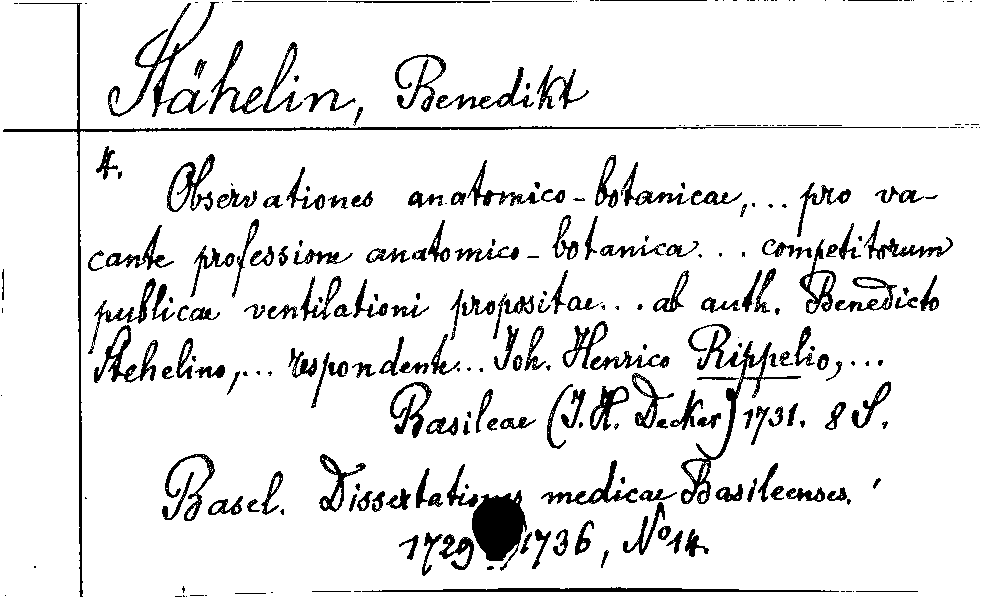 Stähelin, Benedikt
4.
Observationes anatomico-botanicae,... pro va-
cante professione anatomico-botanica... competitorum
publicae ventilationi propositae... ab auth. Benedicto
Stehelino,... respondente... Joh. Henrico Rippelio,...
Basileae (J. H. Decker) 1731. 8 S.
Basel. Dissertationes medicae Basileenses.
1729 1736, No 14.